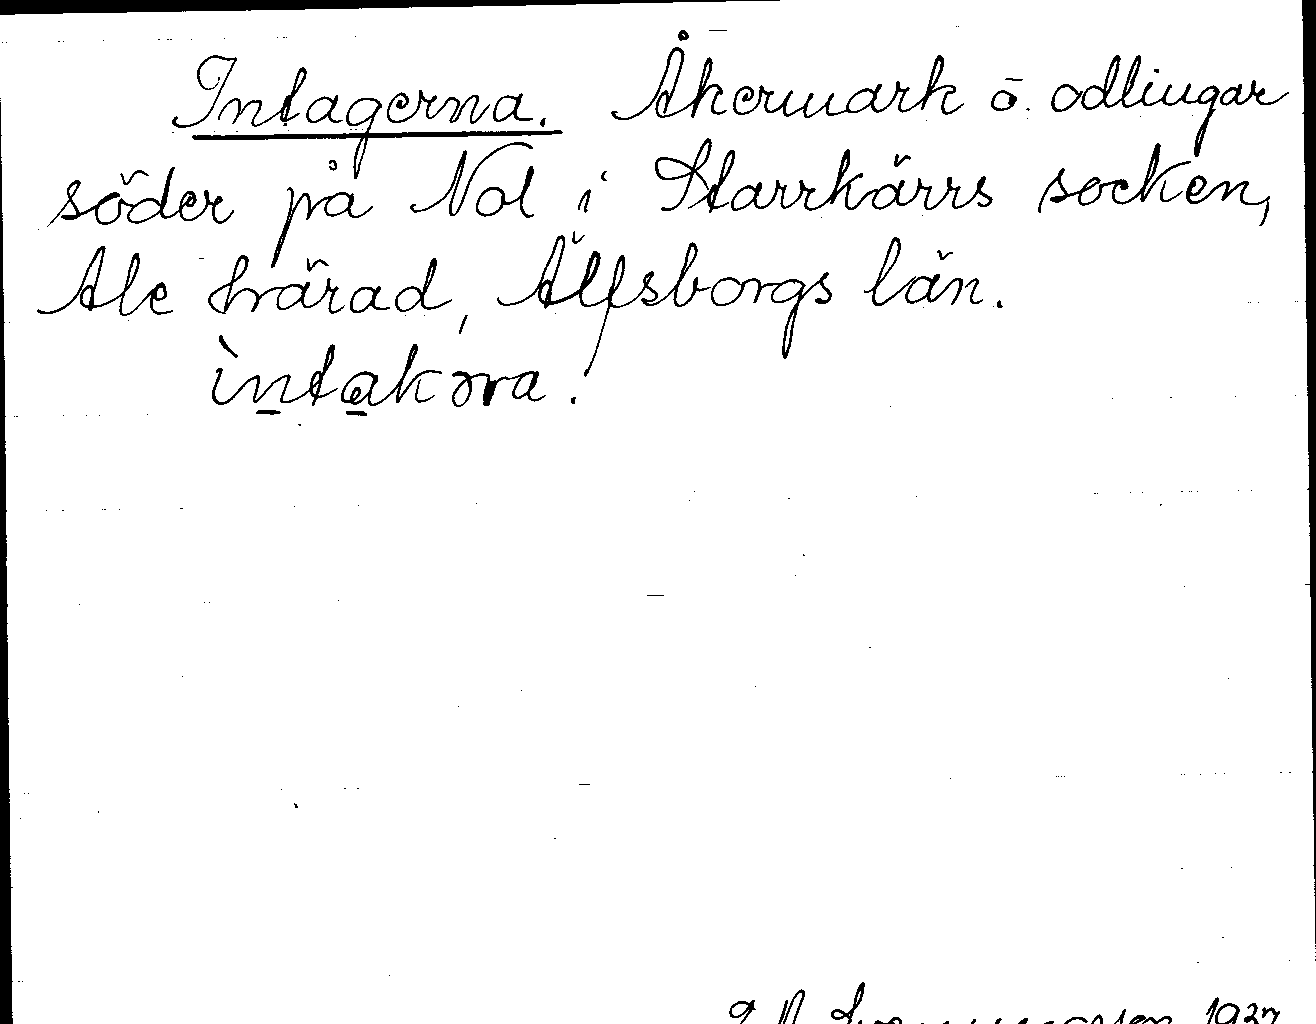 Intagerna. Åkermark o. odlingar
söder på Nol i Starrkärrs socken,
Ale härad, Älfsborgs län.
ìntakəra.
1927